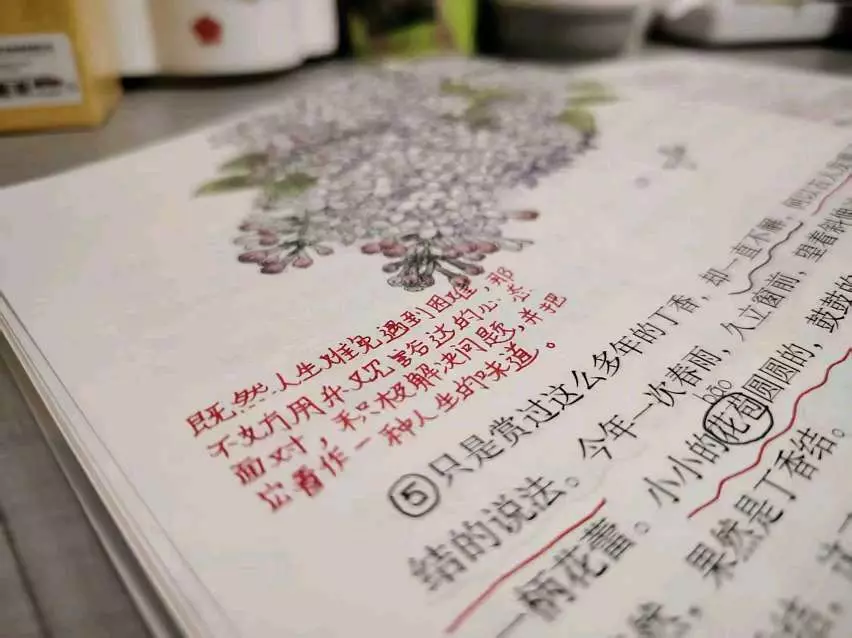 既然人生难免遇到困难,那
不妨用乐观豁达的心态
面对,积极解决问题,并把
它看作一种人生的味道。
⑤只是赏过这么多年的丁香,却一直不解,何以古人发
结的说法。今年一次春雨,久立窗前,望着斜
bāo
一柄花蕾。小小的花苞圆圆的,鼓鼓的
果然是丁香结。